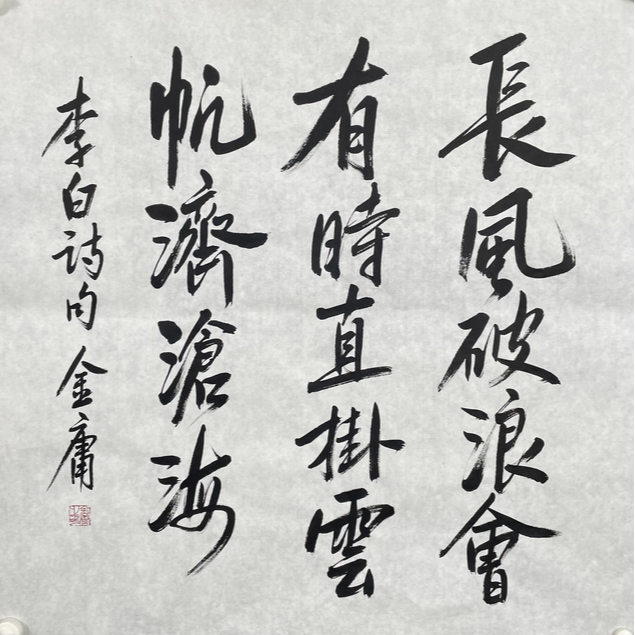 長風破浪會
有時直掛雲
帆濟滄海
李白詩句 金庸